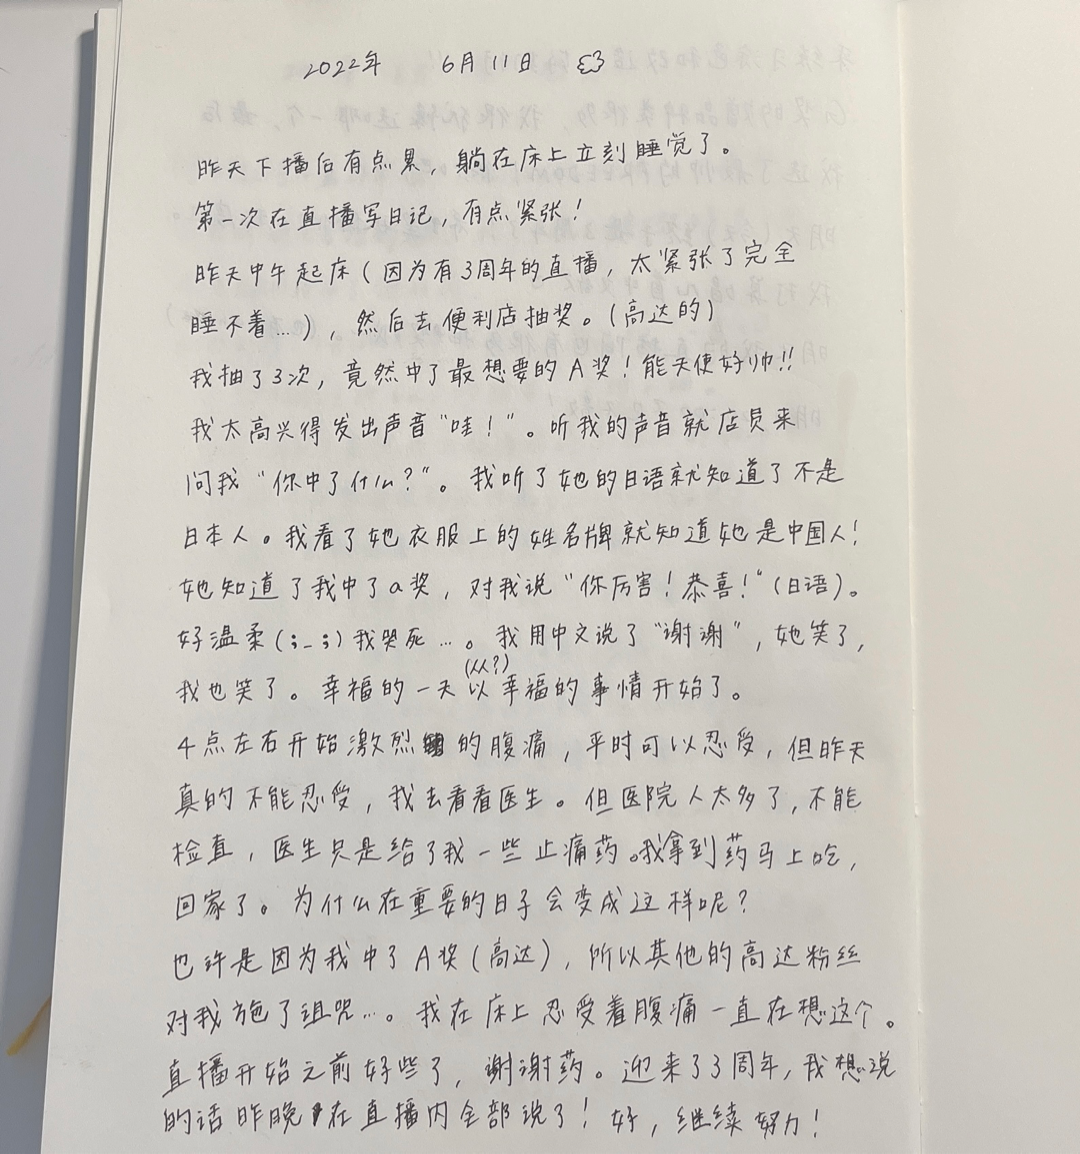 2022年 6月11日 ε3
昨天下播后有点累，躺在床上立刻睡觉了。
第一次在直播写日记，有点紧张！
昨天中午起床（因为有3周年的直播，太紧张了完全
睡不着…），然后去便利店抽奖。（高达的）
我抽了3次，竟然中了最想要的A奖！能天使好帅!!
我太高兴得发出声音“哇！”。听我的声音就店员来
问我“你中了什么？”。我听了她的日语就知道了不是
日本人。我看了她衣服上的姓名牌就知道她是中国人！
她知道了我中了a奖，对我说“你厉害！恭喜！”（日语）。
好温柔(；_；)我哭死…。我用中文说了“谢谢”，她笑了，
(从？)
我也笑了。幸福的一天以幸福的事情开始了。
4点左右开始激烈的腹痛，平时可以忍受，但昨天
真的不能忍受，我去看看医生。但医院人太多了，不能
检直，医生只是给了我一些止痛药。我拿到药马上吃，
回家了。为什么在重要的日子会变成这样呢？
也许是因为我中了A奖（高达），所以其他的高达粉丝
对我施了诅咒…。我在床上忍受着腹痛一直在想这个。
直播开始之前好些了，谢谢药。迎来了3周年，我想说
的话昨晚在直播内全部说了！好，继续努力！